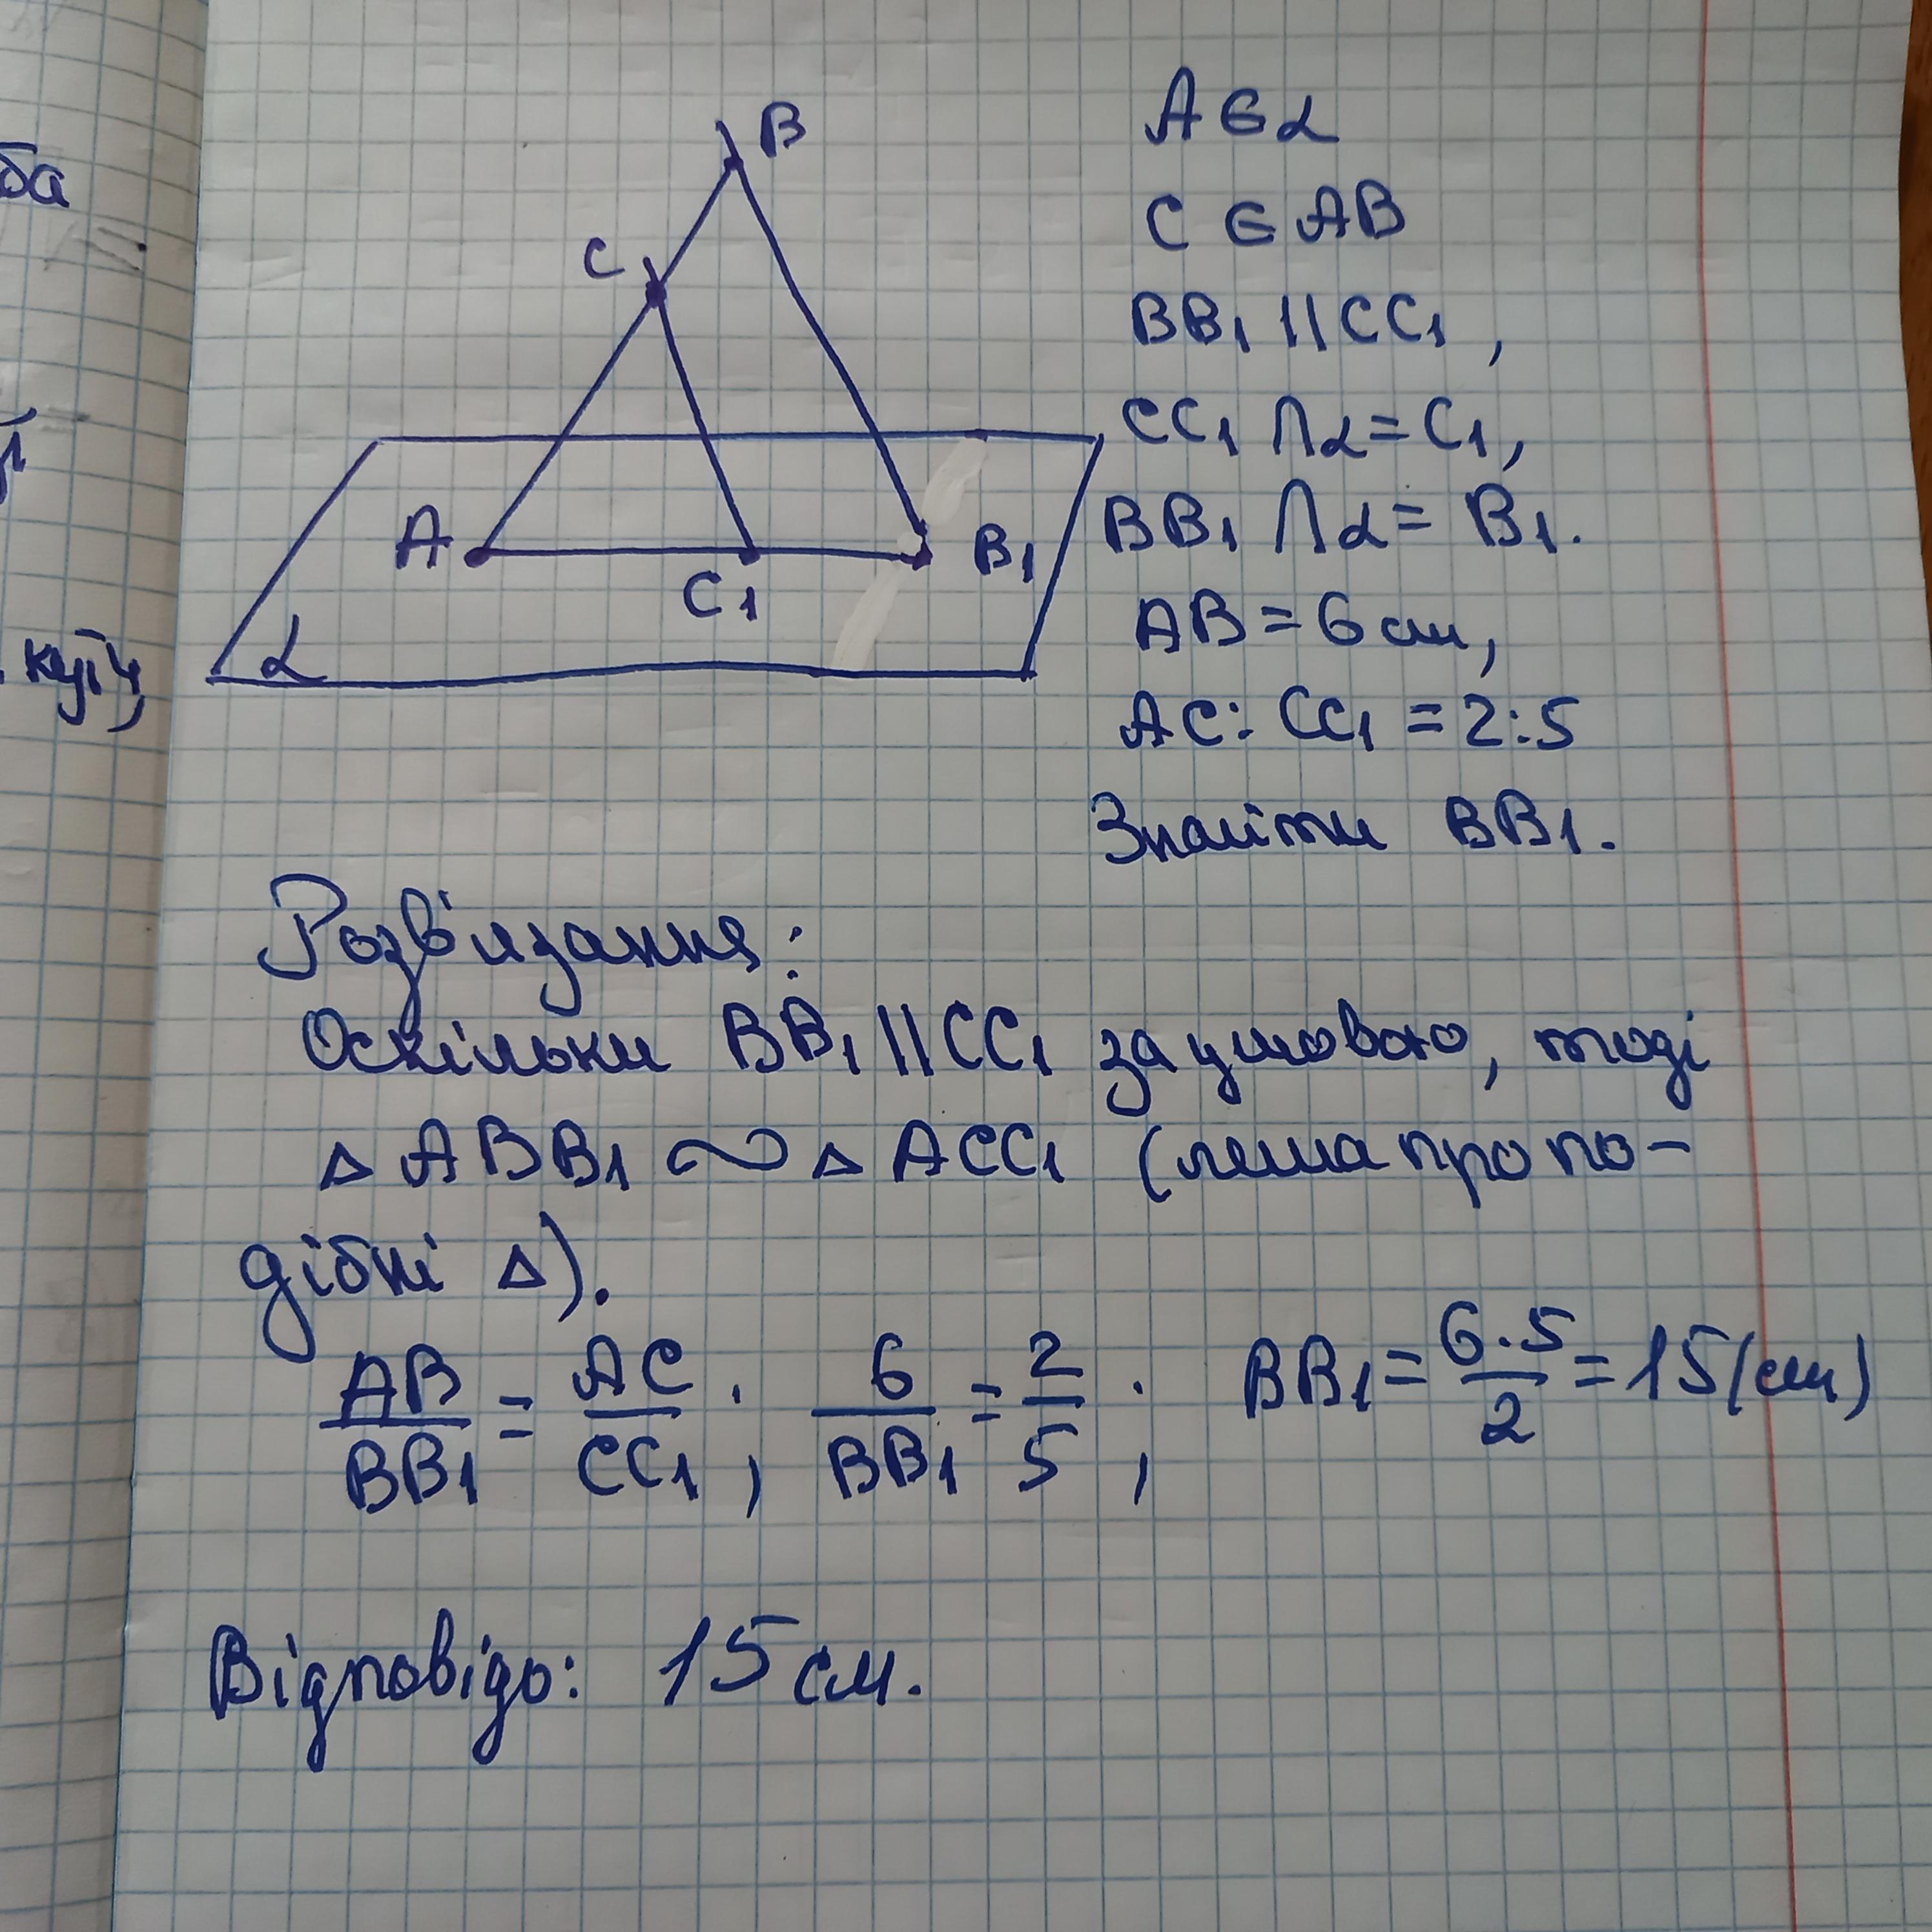 ба
куїч,
B
C
A
C1
B1
α
A ∈ α
C ∈ AB
BB1 || CC1,
CC1 ∩ α = C1,
BB1 ∩ α = B1.
AB = 6 см,
AC : CC1 = 2:5
Знайти BB1.
Розв'язання:
Оскільки BB1 || CC1 за умовою, тоді
△ ABB1 ∾ △ ACC1 (лема про по-
дібні △).
AB/BB1 = AC/CC1; 6/BB1 = 2/5; BB1 = 6·5/2 = 15 (см)
Відповідь: 15 см.